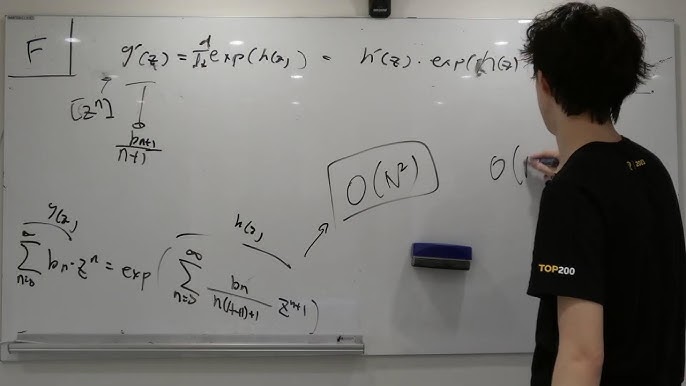 F
g'(z) = d/dz exp(h(z)) = h'(z) · exp(h(z)
[z^n]
b_{n+1}/n+1
O(N²)
O(
g(z)
h(z)
∑_{n=0}^{∞} b_n · z^n = exp( ∑_{n=0}^{∞} b_n/n(n+1)+1 z^{n+1} )
TOP200